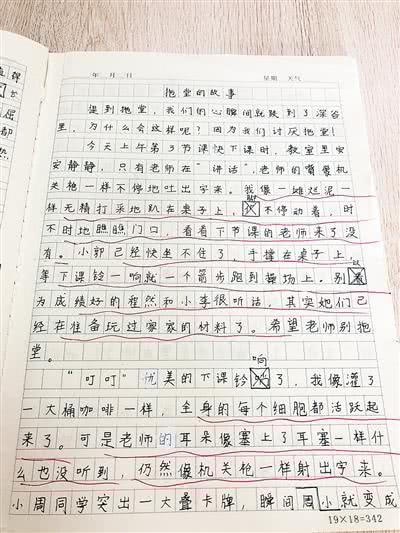 年 月 日 星期 天气
拖堂的故事
提到拖堂，我们的心瞬间就跌到了深谷
里，为什么会这样呢？因为我们讨厌拖堂！
今天上午第3节课快下课时，教室里安
安静静，只有老师在“讲话”，老师的嘴像机
关枪一样不停地吐出字来。我像一摊烂泥一
样无精打采地趴在桌子上，不停动着，时
不时地瞧瞧门口，看看下节课的老师来了没
有。小郭已经快坐不住了，手撑在桌子上，
等下课铃一响就一个箭步跑到操场上。别以
为成绩好的程然和小李很听话，其实她们已
经在准备玩过家家的材料了。希望老师别拖
堂。
响
“叮叮”优美的下课铃了，我像灌了
一大桶咖啡一样，全身的每个细胞都活跃起
来了。可是老师的耳朵像塞上了耳塞一样什
么也没听到，仍然像机关枪一样射出字来。
小周同学突出一大叠卡牌，瞬间周小就变成
19×18=342
课
屈
都
热